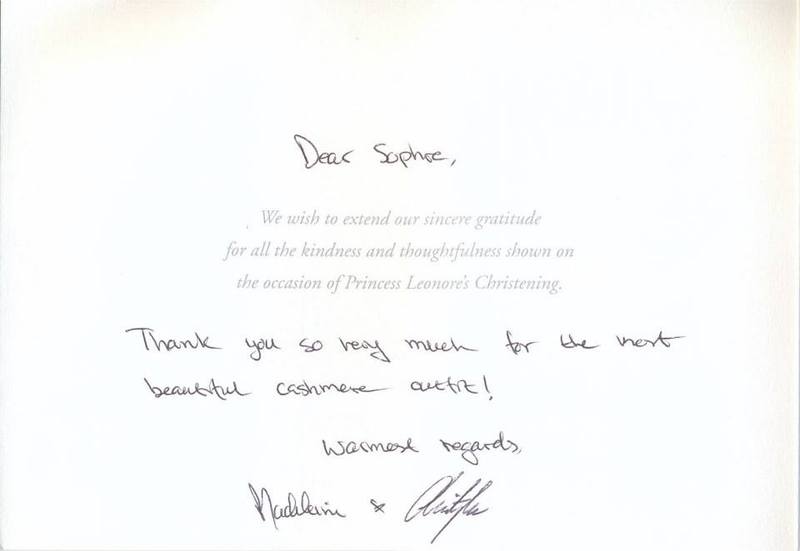 Dear Sophie,
We wish to extend our sincere gratitude
for all the kindness and thoughtfulness shown on
the occasion of Princess Leonore's Christening.
Thank you so very much for the most
beautiful cashmere outfit!
Warmest regards,
Madeleine &